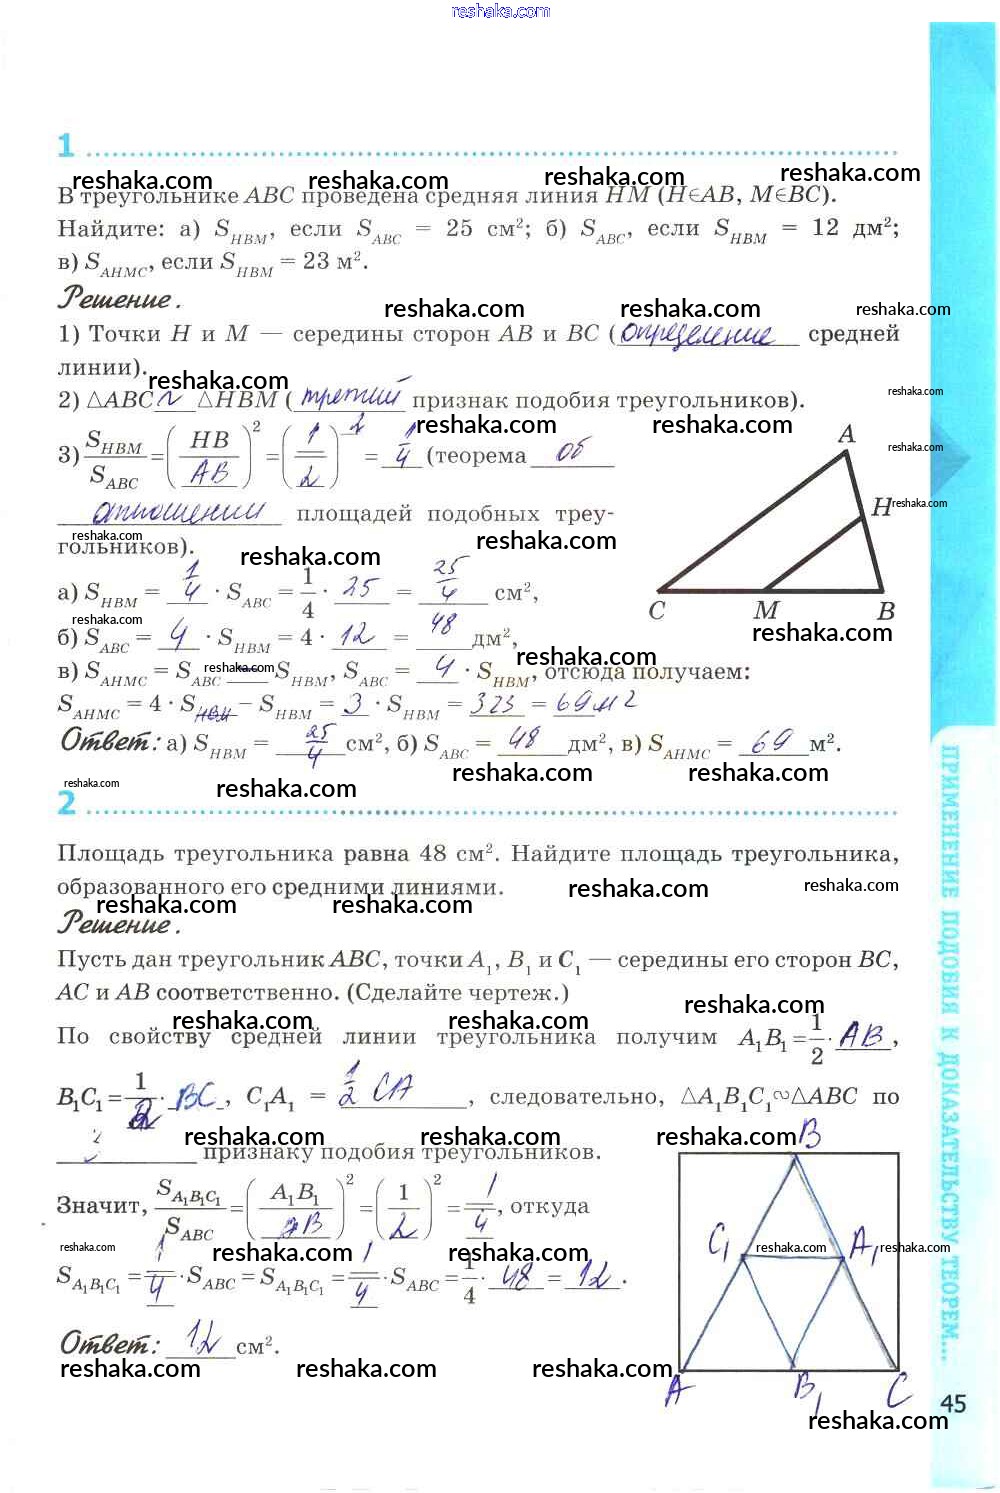 reshaka.com
1
reshaka.com reshaka.com reshaka.com reshaka.com
В треугольнике ABC проведена средняя линия HM (H∈AB, M∈BC).
Найдите: а) S_HBM, если S_ABC = 25 см²; б) S_ABC, если S_HBM = 12 дм²;
в) S_AHMC, если S_HBM = 23 м².
Решение.
reshaka.com reshaka.com reshaka.com
1) Точки H и M — середины сторон AB и BC (определение средней
линии).
reshaka.com reshaka.com
2) △ABC ~ △HBM (третий признак подобия треугольников).
reshaka.com reshaka.com
3) S_HBM/S_ABC = (HB/AB)² = (1/2)² = 1/4 (теорема об
reshaka.com
отношении площадей подобных треу-
гольников).
reshaka.com reshaka.com reshaka.com reshaka.com
A
H
C M B
а) S_HBM = 1/4 · S_ABC = 1/4 · 25 = 25/4 см²,
б) S_ABC = 4 · S_HBM = 4 · 12 = 48 дм²,
reshaka.com reshaka.com reshaka.com
в) S_AHMC = S_ABC — S_HBM, S_ABC = 4 · S_HBM, отсюда получаем:
S_AHMC = 4 · S_HBM – S_HBM = 3 · S_HBM = 323 = 69м2
Ответ: а) S_HBM = 25/4 см², б) S_ABC = 48 дм², в) S_AHMC = 69 м².
reshaka.com reshaka.com reshaka.com reshaka.com
2
Площадь треугольника равна 48 см². Найдите площадь треугольника,
образованного его средними линиями.
reshaka.com reshaka.com reshaka.com reshaka.com
Решение.
Пусть дан треугольник ABC, точки A₁, B₁ и C₁ — середины его сторон BC,
AC и AB соответственно. (Сделайте чертеж.)
reshaka.com reshaka.com reshaka.com
По свойству средней линии треугольника получим A₁B₁ = 1/2 · AB,
B₁C₁ = 1/2 · BC, C₁A₁ = 1/2 CA, следовательно, △A₁B₁C₁ ∾ △ABC по
reshaka.com reshaka.com reshaka.com
признаку подобия треугольников.
Значит, S_A₁B₁C₁/S_ABC = (A₁B₁/AB)² = (1/2)² = 1/4, откуда
reshaka.com reshaka.com reshaka.com reshaka.com reshaka.com
S_A₁B₁C₁ = 1/4 · S_ABC = S_A₁B₁C₁ = 1/4 · S_ABC = 1/4 · 48 = 12.
Ответ: 12 см².
reshaka.com reshaka.com reshaka.com
B
C₁ A₁
A B₁ C
reshaka.com
ПРИМЕНЕНИЕ ПОДОБИЯ К ДОКАЗАТЕЛЬСТВУ ТЕОРЕМ...
45